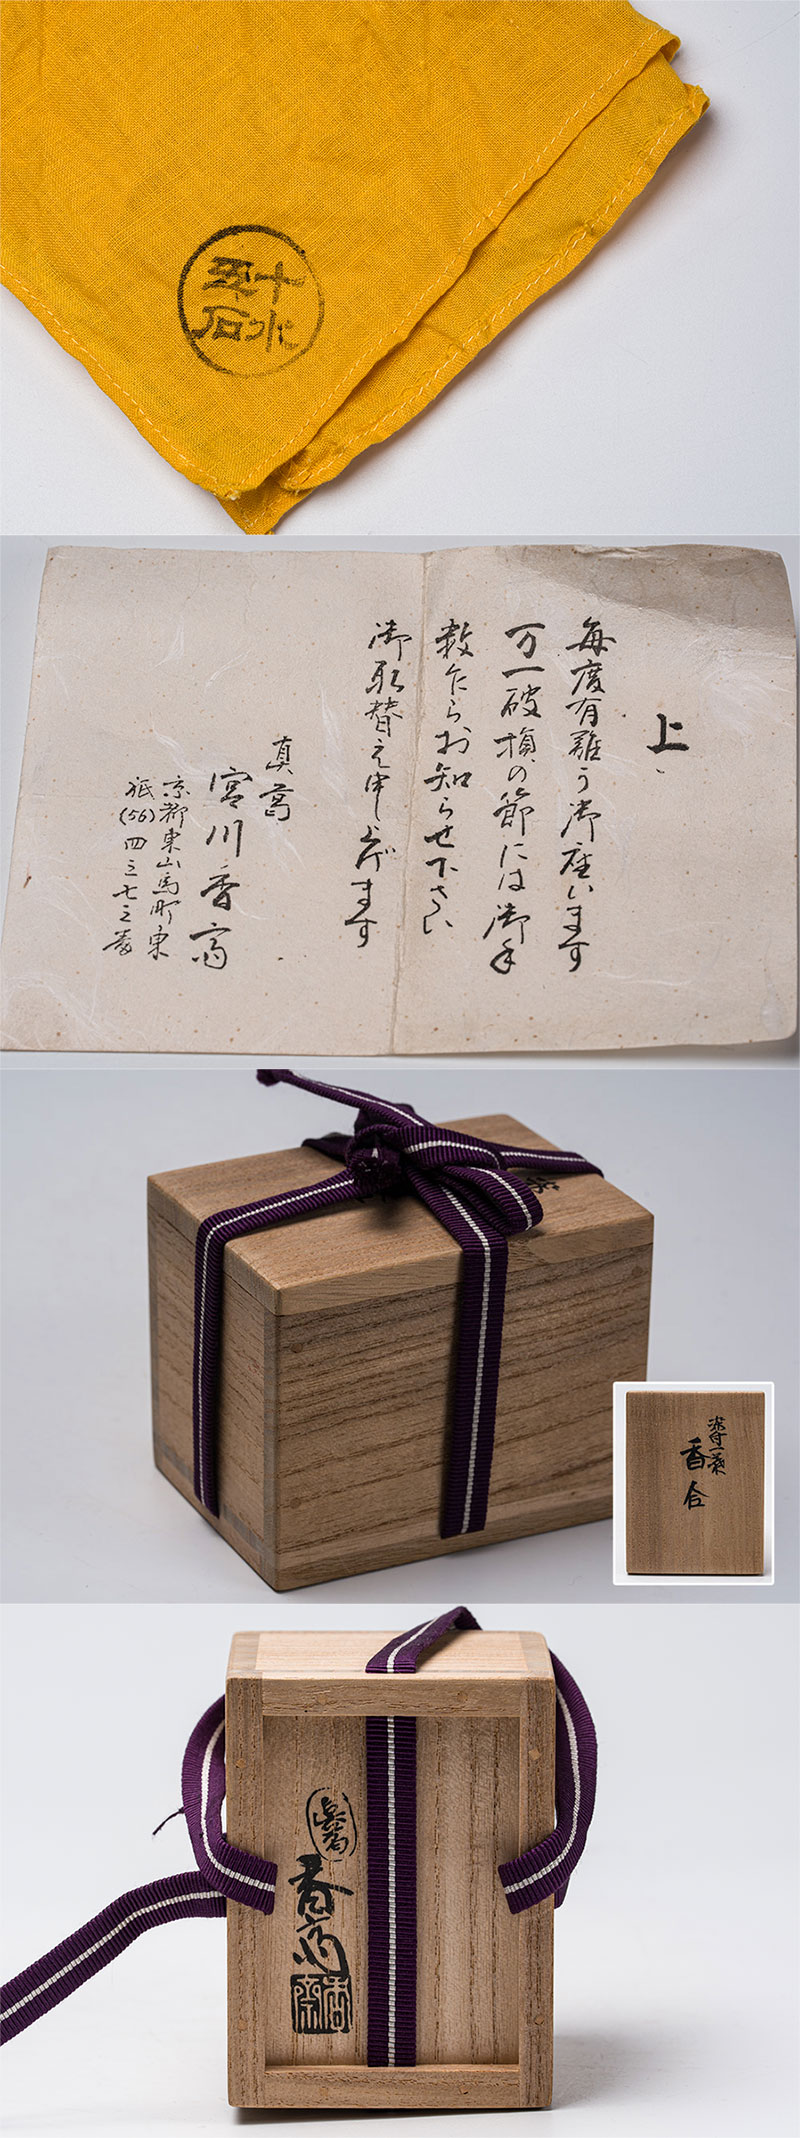 十水
五石
上
毎度有難う御座います
万一破損の節には御手
数乍らお知らせ下さい
御取替え申し上げます
真葛
宮川香斎
京都東山馬町東
祇(56)四三七三番
染付一葉
香合
真葛
香斎
香斎